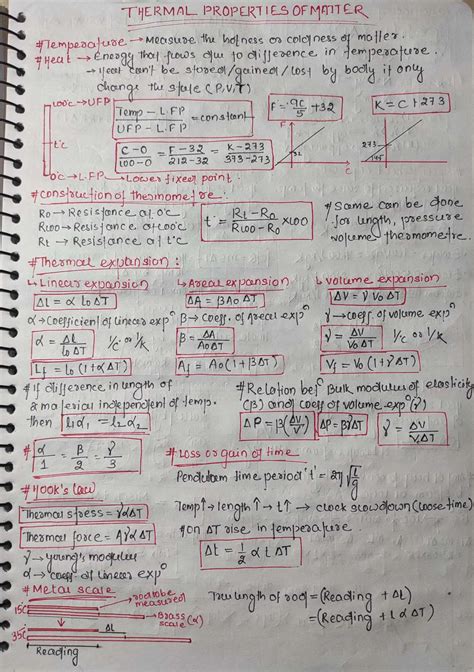 THERMAL PROPERTIES OF MATTER
# Temperature → Measure the hotness or coldness of matter.
# Heat → Energy that flows due to difference in temperature.
→ Heat can't be stored/gained/lost by body it only
change the state (P,V,T)
100°C → UFP
t°C
0°C → L.F.P → Lower fixed point.
Temp - L.F.P / UFP - L.F.P = constant
C-0 / 100-0 = F-32 / 212-32 = K-273 / 373-273
F = 9C/5 + 32
K = C + 273
F
32
C
K
273
45°
C
# construction of thermometre.
R0 → Resistance at 0°C
R100 → Resistance at 100°C
Rt → Resistance at t°C
t = Rt - R0 / R100 - R0 × 100
# Same can be done
for length, pressure
volume thermometre.
# Thermal expansion:
↳ Linear expansion
Δl = α l0 ΔT
α → Coefficient of linear expⁿ
α = Δl / l0ΔT 1/°C or 1/K
Lf = l0 (1+αΔT)
↳ Areal expansion
ΔA = βA0 ΔT
β → Coeff. of Areal expⁿ
β = ΔA / A0ΔT
Af = A0 (1+βΔT)
↳ volume expansion
ΔV = γ V0 ΔT
γ → Coeff. of volume expⁿ
γ = ΔV / V0 ΔT 1/°C or 1/K
Vf = V0 (1+γΔT)
# If difference in length of
2 material independent of temp.
then l1α1 = l2α2
# Relation betⁿ Bulk modulus of elasticity
(β) and coeff of volume expⁿ (γ)
ΔP = β(ΔV/V) ΔP = βγΔT γ = ΔV / VΔT
# α/1 = β/2 = γ/3
# Loss or gain of time
Pendulam time period 't' = 2π√l/g
Temp↑ → length↑ → t↑ → clock slow down (loose time)
# on ΔT rise in temperature
Δt = 1/2 α t ΔT
# Hook's law
Thermal stress = YαΔT
Thermal force = AYαΔT
Y → young's modulus
α → coeff of linear expⁿ
# Metal scale
rod to be
measured
15°C
Brass
scale (α)
35°C
Δl
Reading
True length of rod = (Reading + Δl)
= (Reading + l α ΔT)